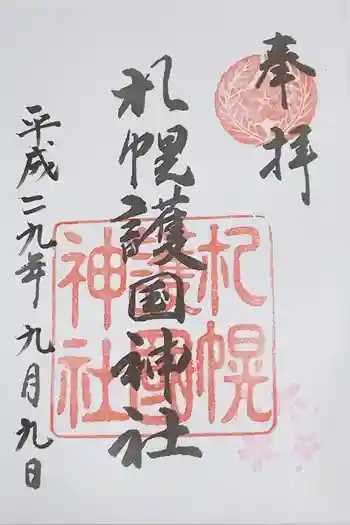 奉拝
札幌護国神社
札幌
護国
神社
平成二九年九月九日